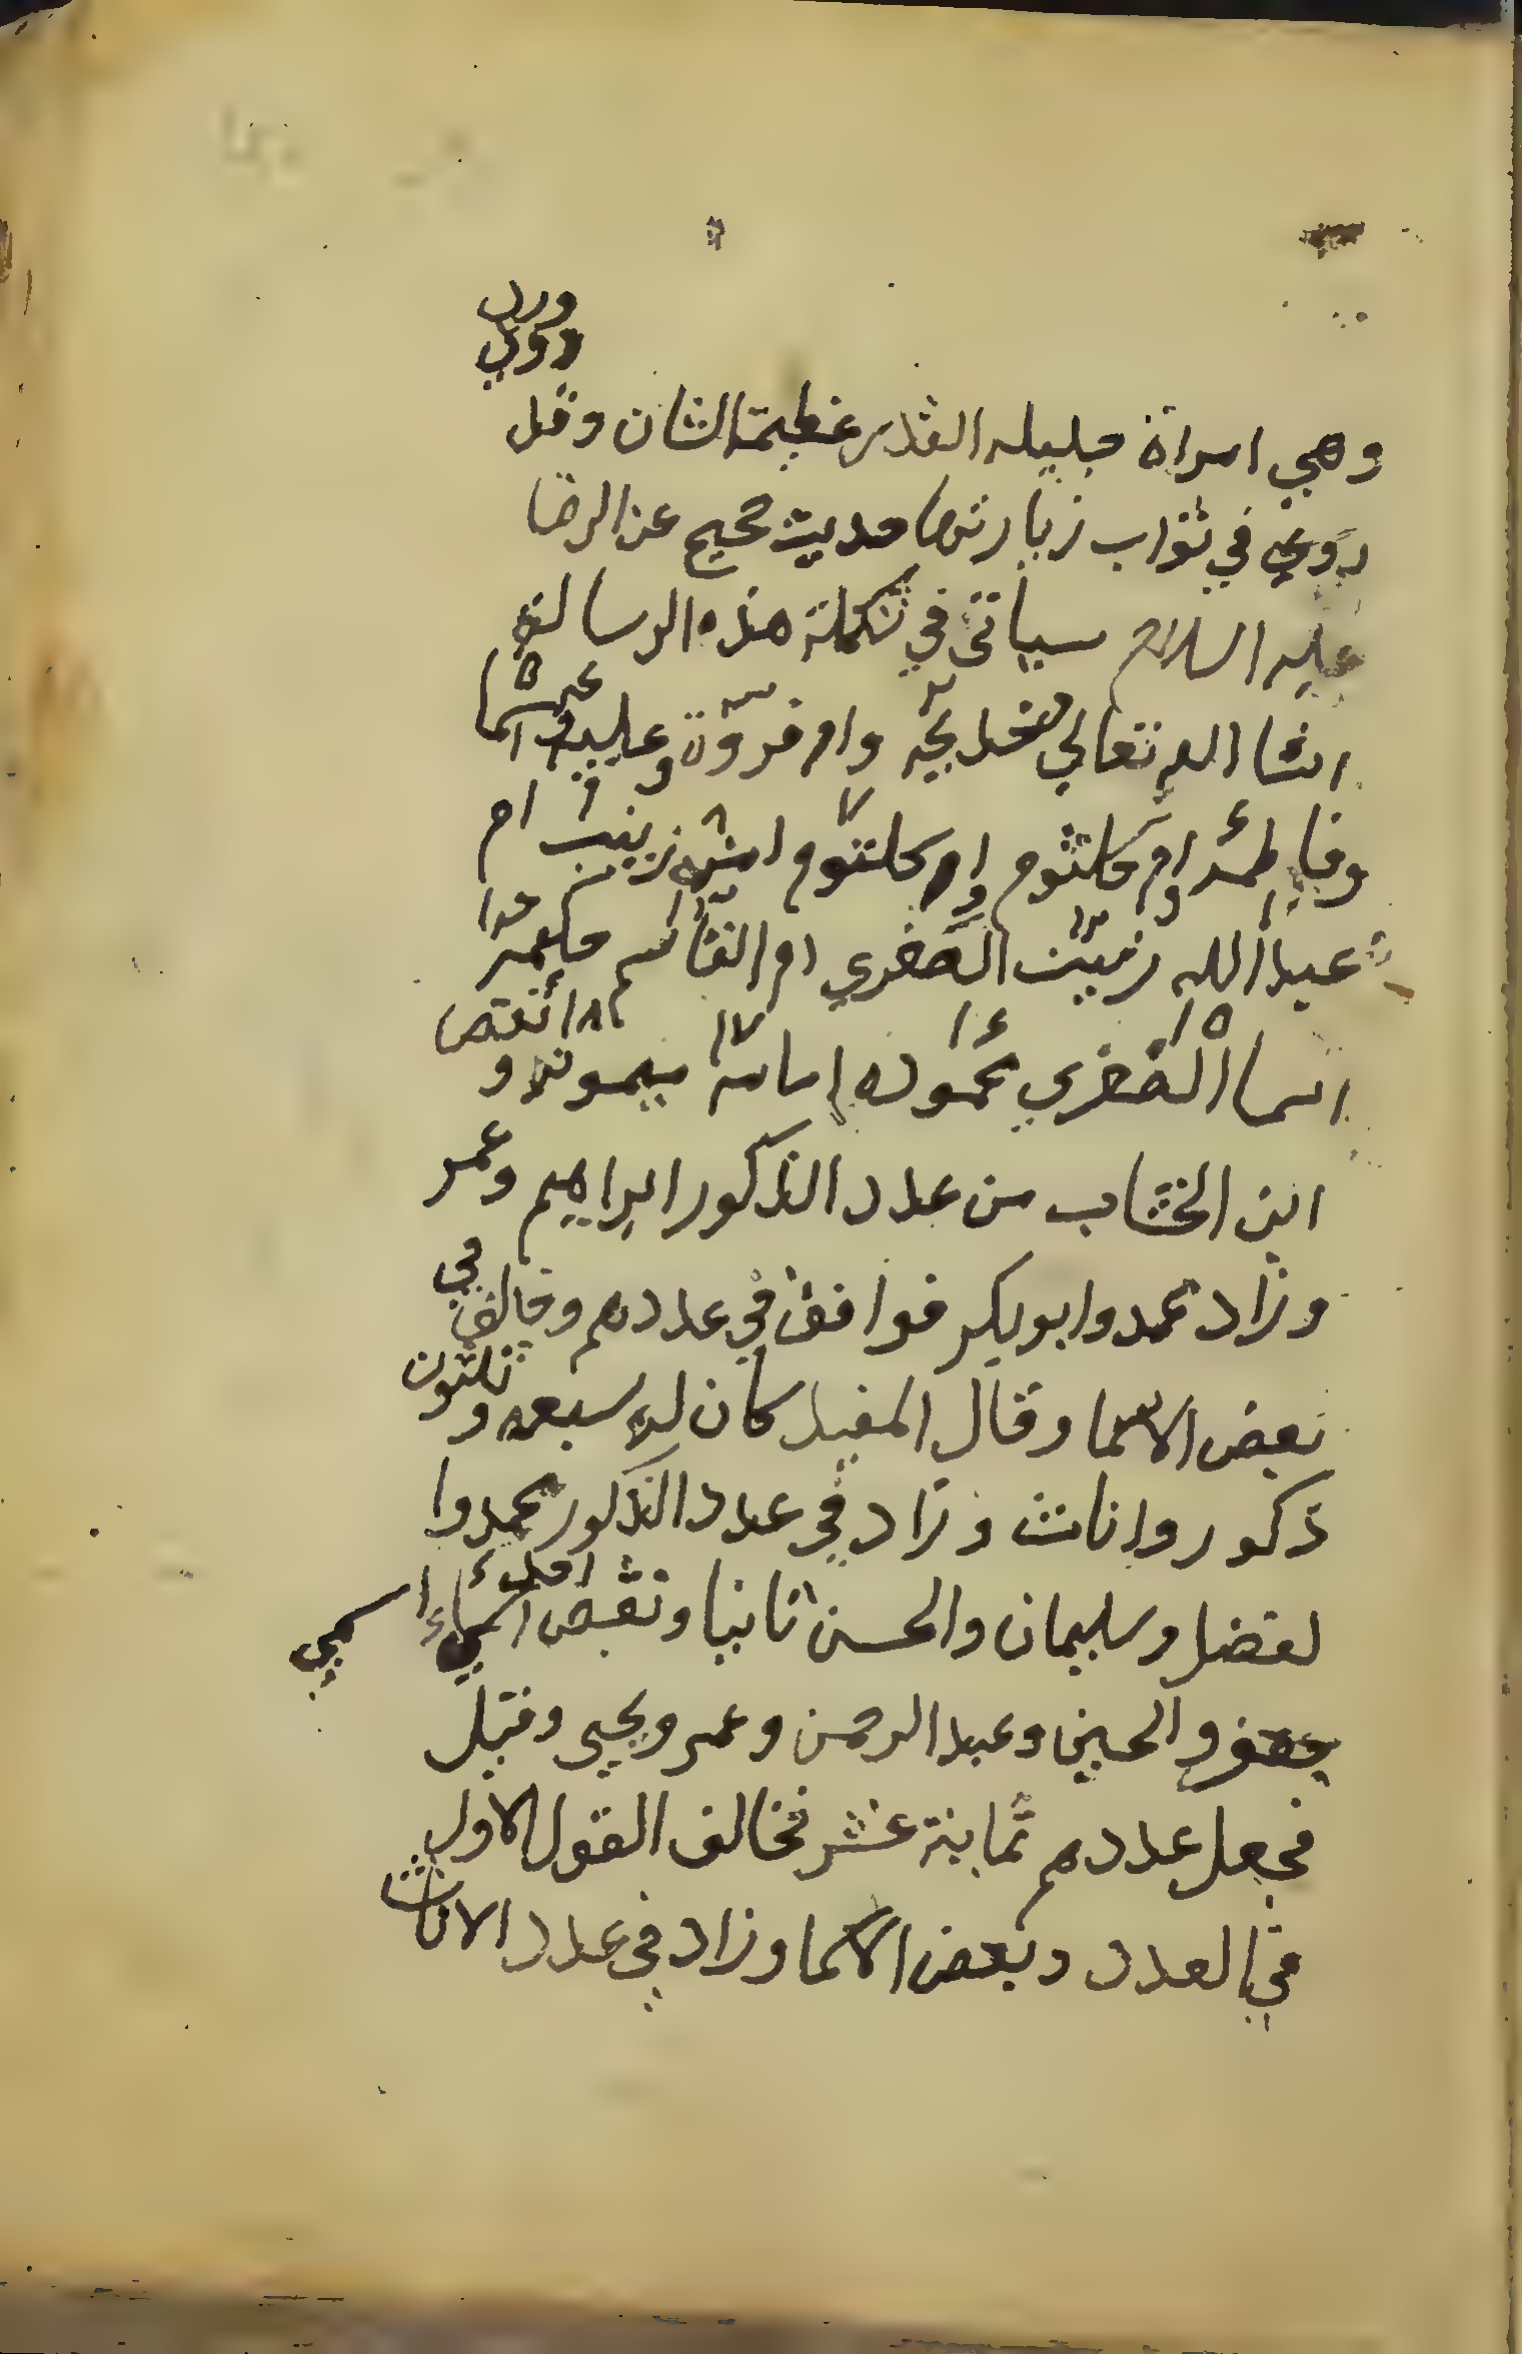 ورد
روي
وهي امراة جليله القدر عظيمة الشان وقد
روي في ثواب زيارتها حديث صحيح عن الرضا
عليه السلام سياتي في تكملة هذه الرسالة
انشا الله تعالى خديجه وام فروة وعليه اسما
وفاطمه وام كلثوم وام كلثوم زينب ام
عبد الله زينب الصغري ام القاسم حكيمه
اسما الصغري محموده امامه ميمونه ونقص
ابن الخشاب من عدد الذكور ابراهيم وعمر
وزاد محمد وابوبكر فوافق في عددهم وخالف في
بعض الاسما وقال المفيد كان له سبعه وثلثون
ذكور واناث وزاد في عدد الذكور محمدوا
لفضل وسليمان والحسن ثانيا ونقص
جعفر والحسين وعبد الرحمن وعمر ويحيى وقيل
فجعل عددهم ثمانية عشر فخالف القول الاول
في العدد وبعض الاسما وزاد في عدد الاناث